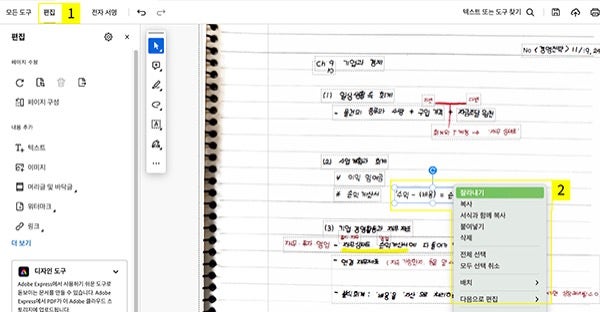 모든 도구 편집 1 전자 서명 텍스트 또는 도구 찾기
편집
페이지 수정
페이지 구성
내용 추가
텍스트
이미지
머리글 및 바닥글
워터마크
링크
더 보기
디자인 도구
Adobe Express에서 사용하기 쉬운 도구로
돋보이는 문서를 만들 수 있습니다. Adobe
Express에서 PDF가 이 Adobe 클라우드 스
토리지에 업로드됩니다.
No (경영전략) 11/19,
Ch 9 기업과 경제
10
(1) 일상생활 속 회계
- 물건의 종류와 수량 + 구입 가격 + 자금조달 원천
(2) 사업계획과 회계
* 순익계산서
수익 - (비용) = 순
(3) 기업 경영활동과 재무제표
- 연결 재무제표
2
잘라내기
복사
서식과 함께 복사
붙여넣기
삭제
전체 선택
모두 선택 취소
배치
다음으로 편집